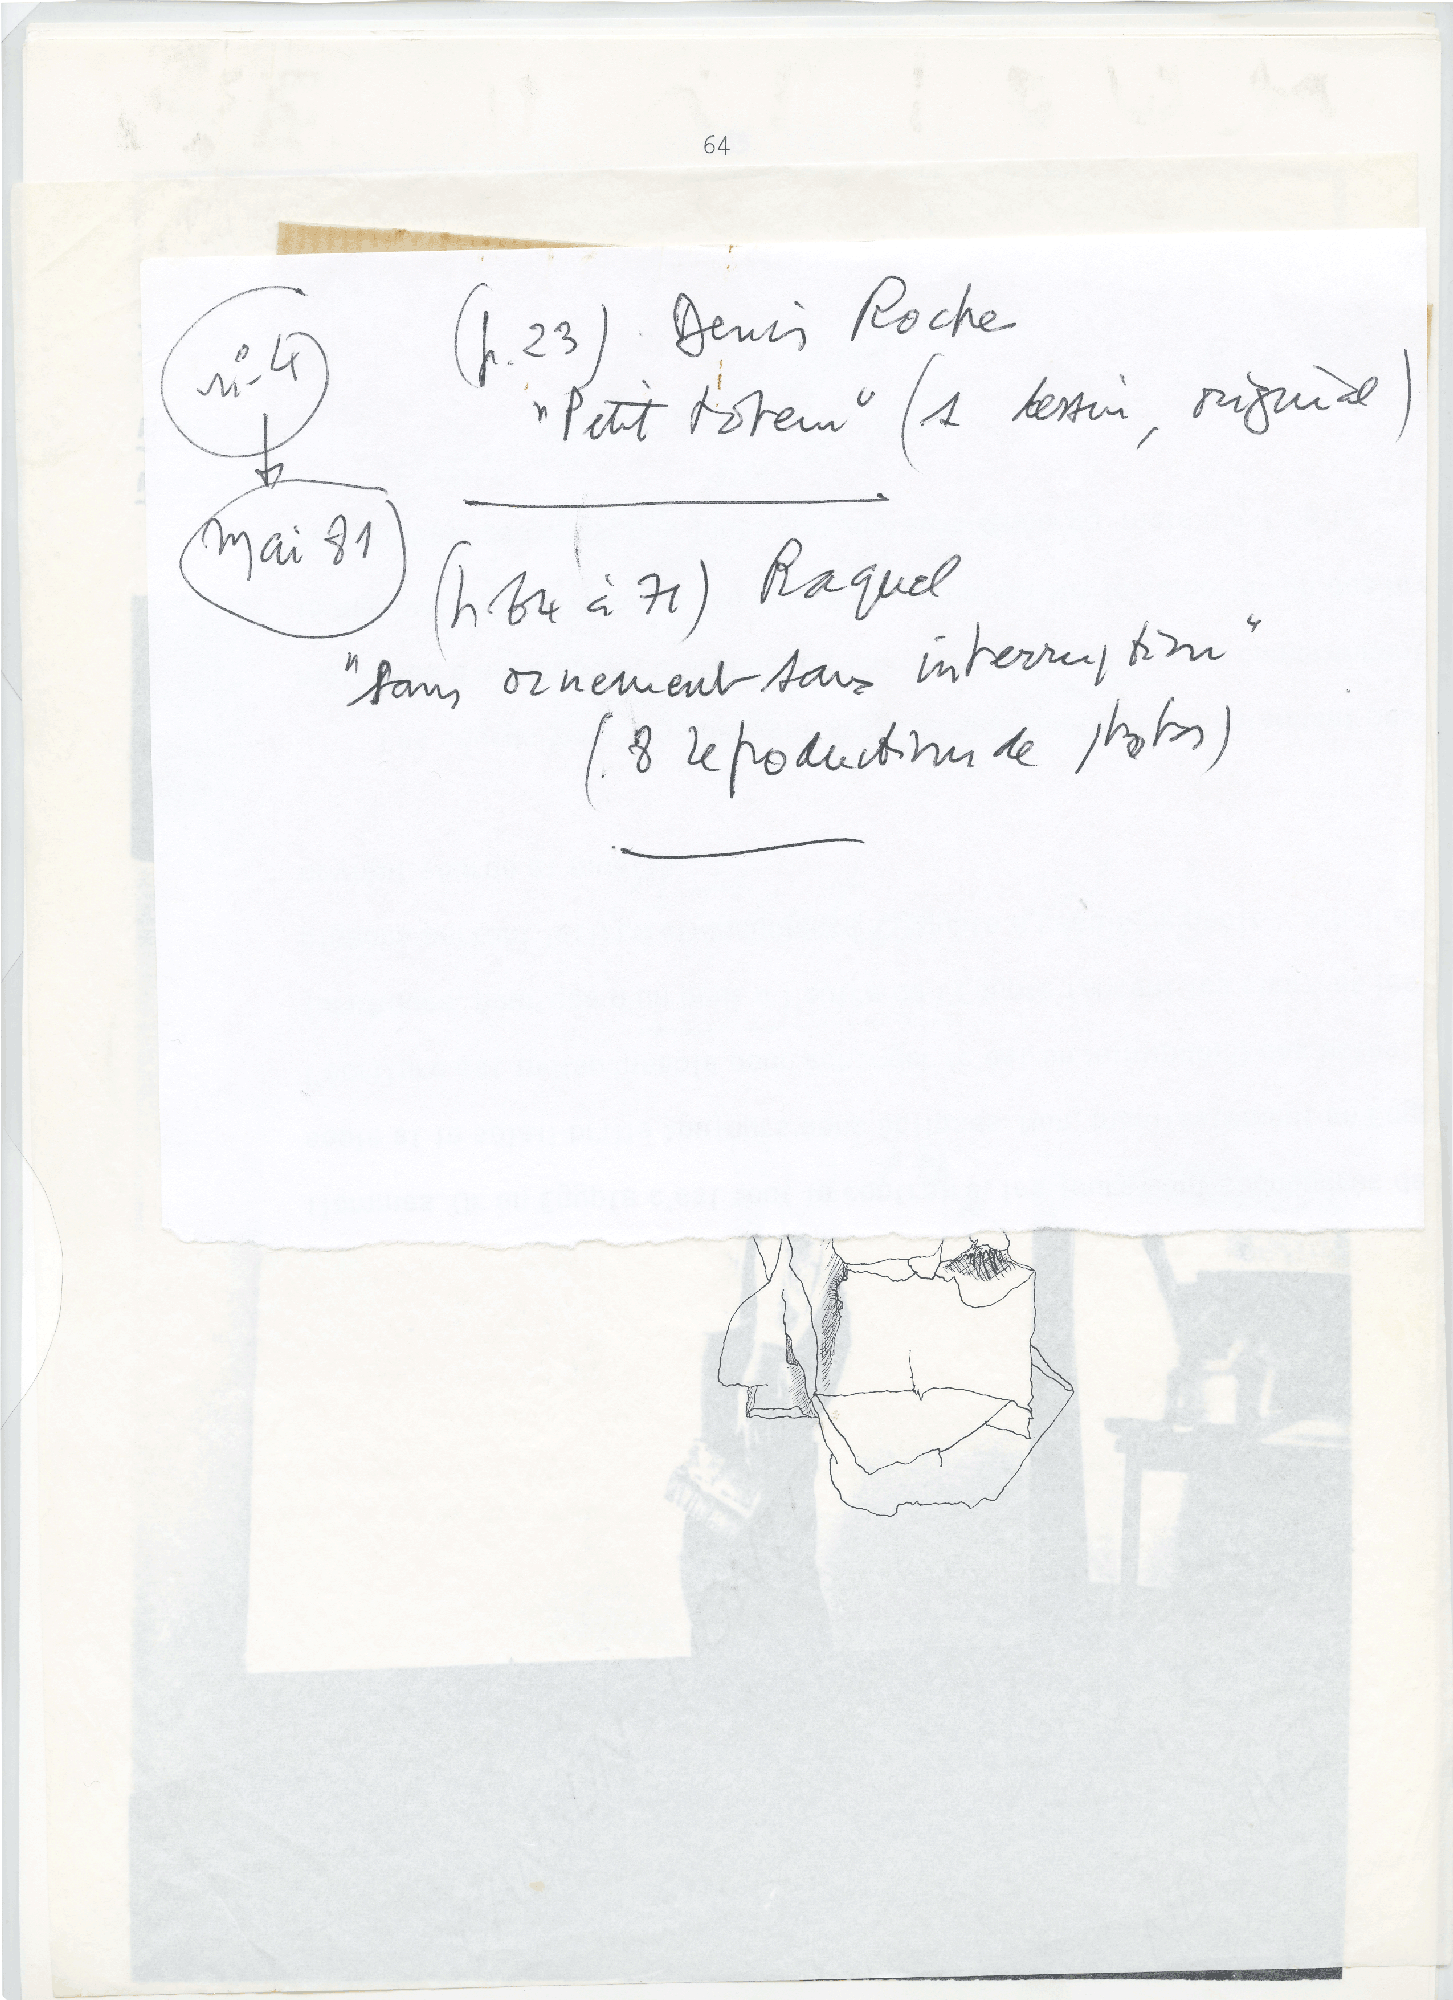 64
n°4
(p.23) Denis Roche
"Petit totem" (1 dessin, original)
Mai 81
(p.64 à 71) Raquel
"Sans ornement sans interruption"
(8 reproductions de photos)